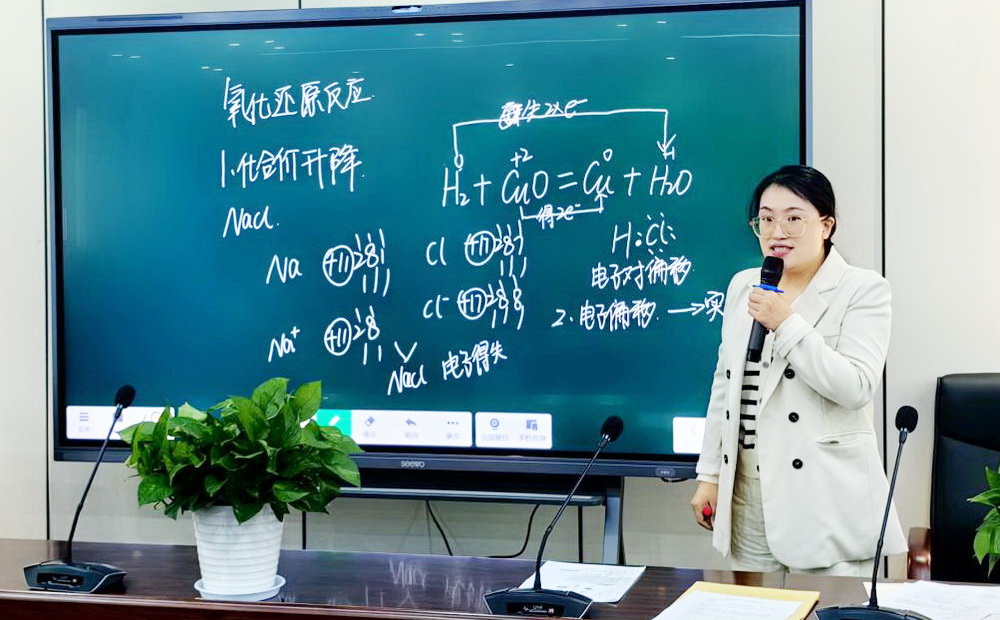 氧化还原反应
失2×e⁻
1.化合价升降
0 +2 0 +1
H₂+CuO=Cu+H₂O
得2e⁻
NaCl.
H:Cl:
Na +11 2 8 1
Cl +17 2 8 7
电子对偏移
Na⁺ +11 2 8
Cl⁻ +17 2 8 8
2.电子偏移→实
NaCl 电子得失
seewo